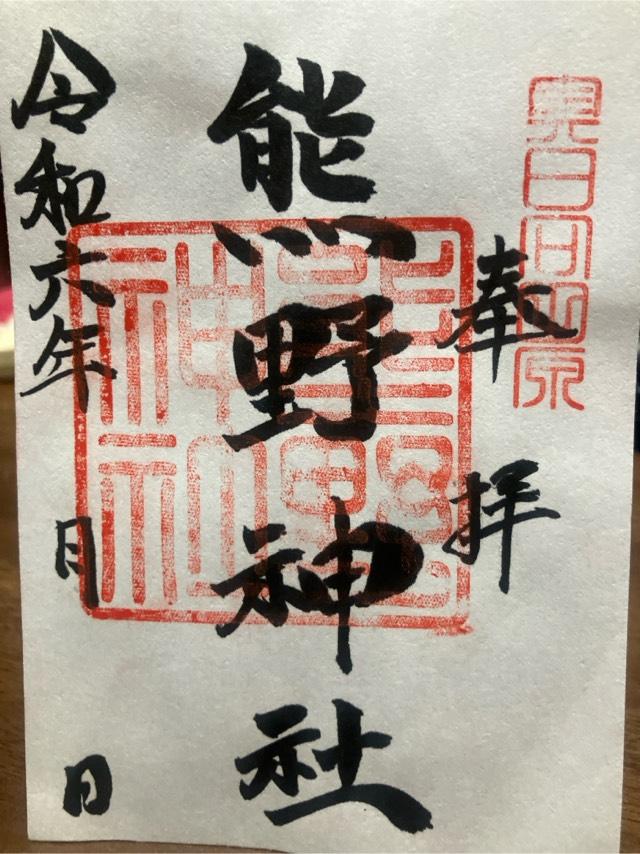 奉拝
熊野神社
熊野
神社
令和六年 月 日